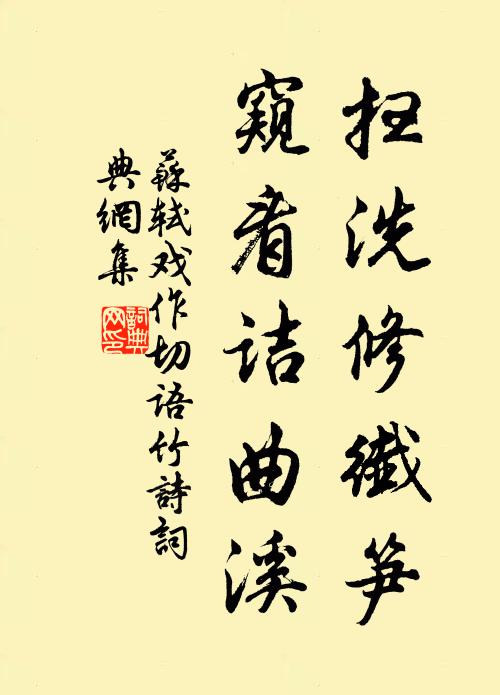 扫洗修纖笋
窺看诘曲溪
蘇轼戏作切语竹詩詞
典網集
詞典
网印